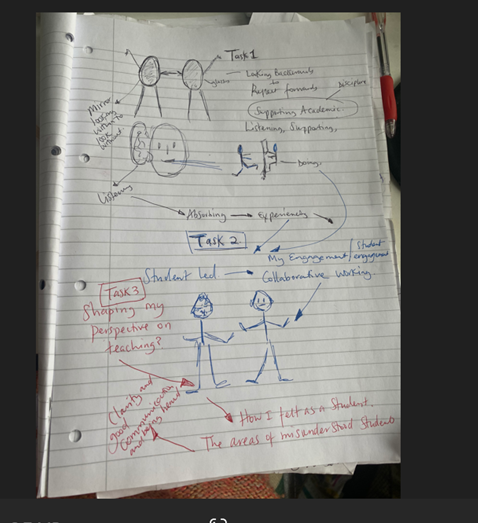 Task 1
Looking Backwards
to
Repeat forwards
Discipline
Supporting Academic
Listening, Supporting,
Mirror
looking
back
Doing,
Listening
Absorbing
Experiencing
Task 2
My Engagement / Student
engagement
Student led
Collaborative working.
Task 3
Shaping my
perspective on
teaching?
Clarity and
good
Communication
and being heard
How I felt as a Student.
The areas of misunderstood Students